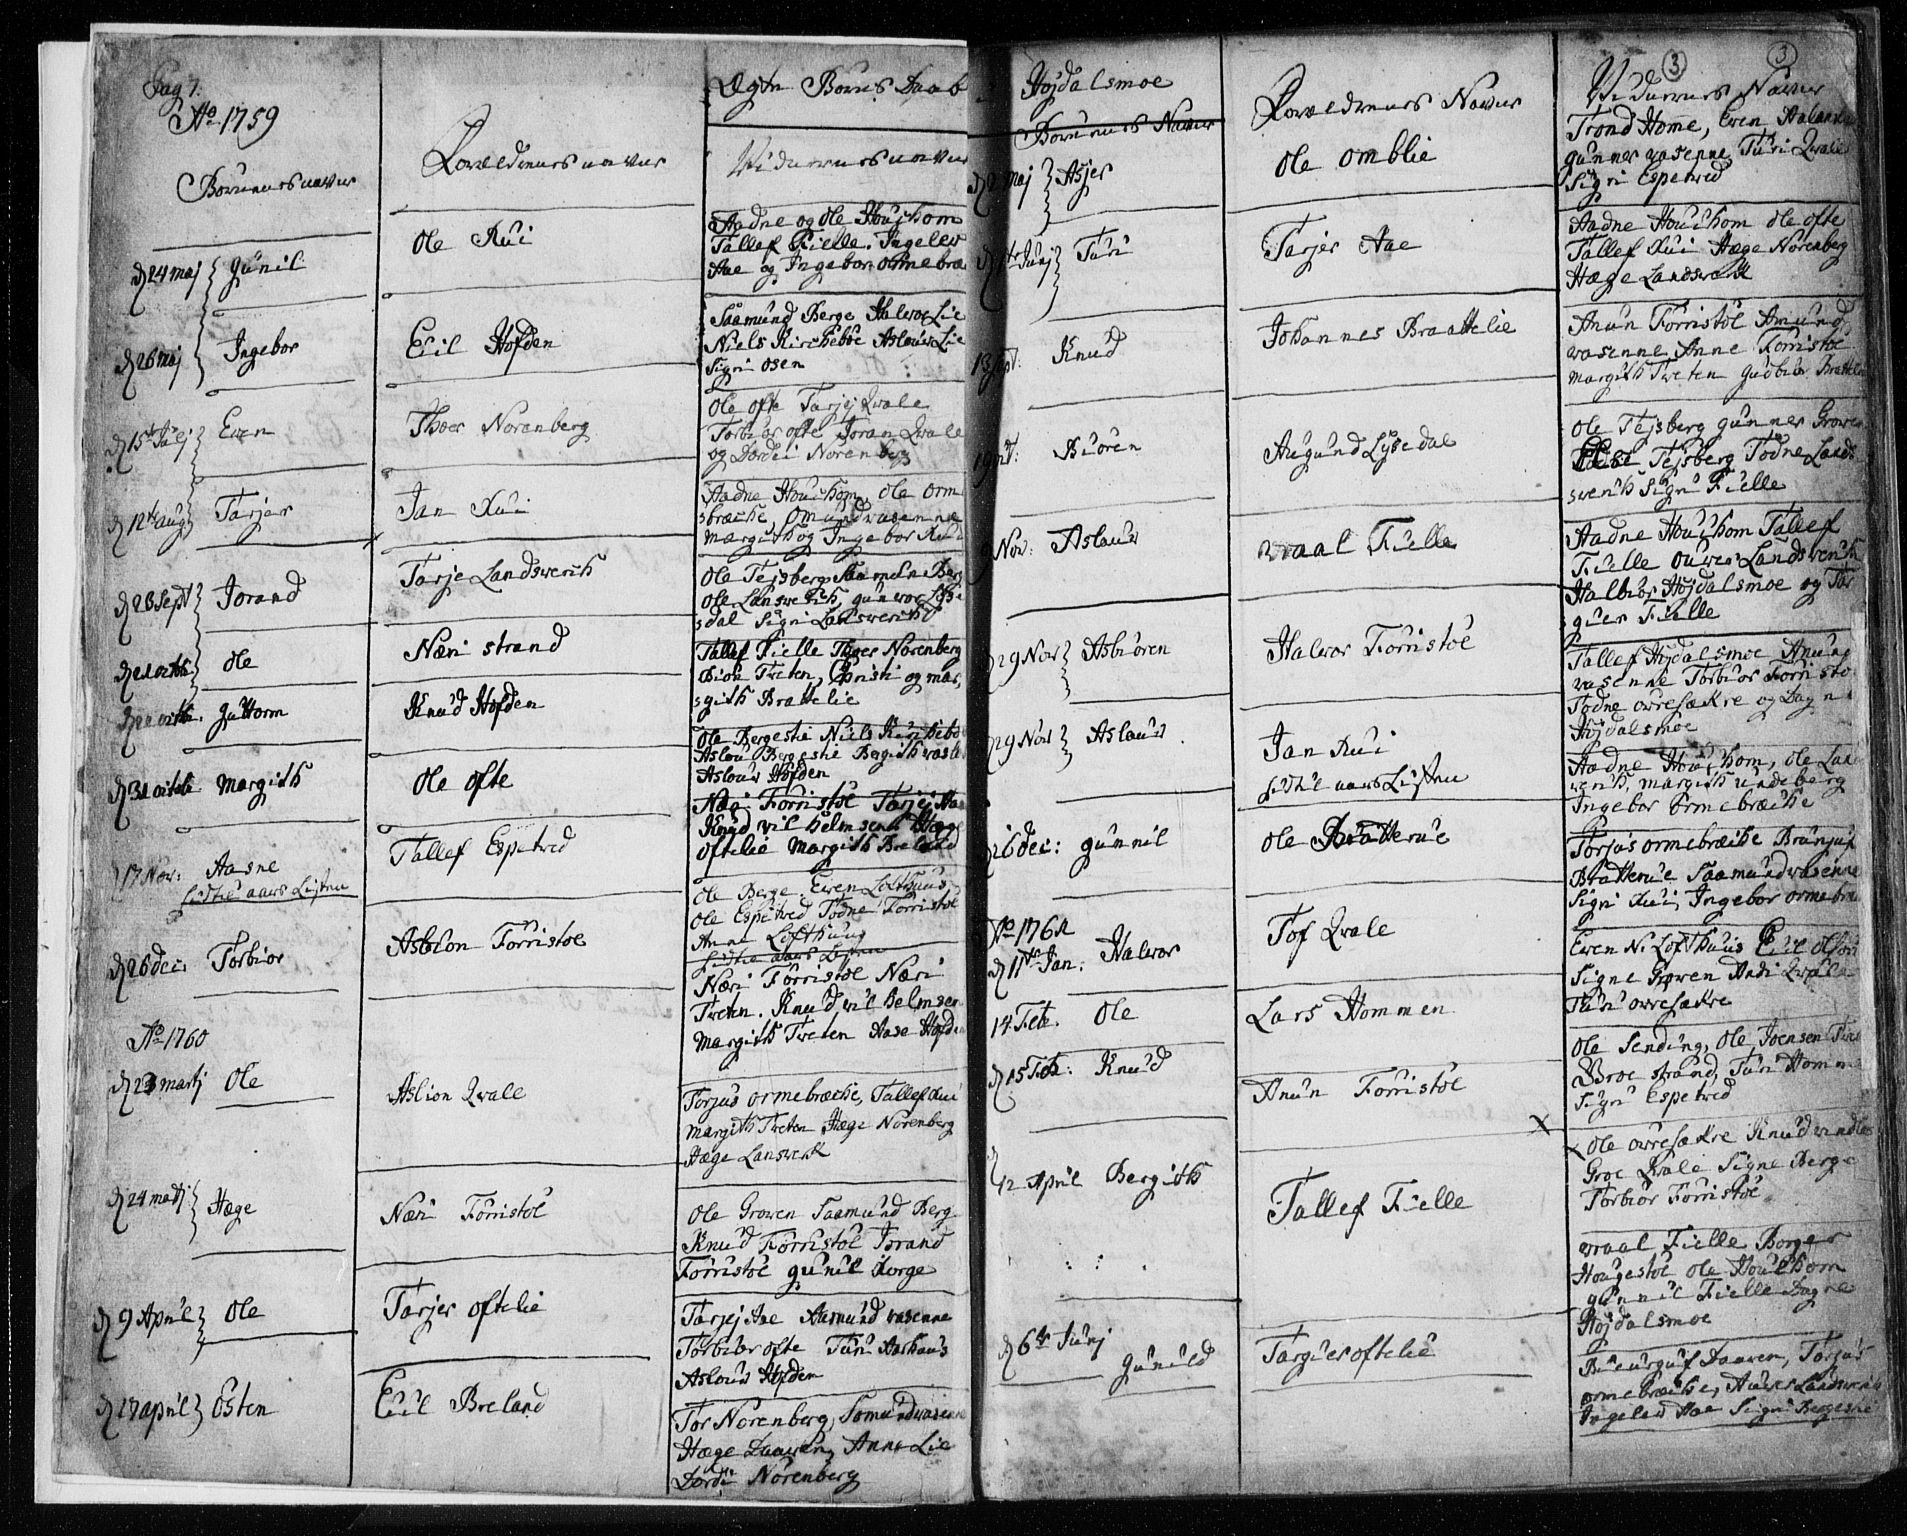 Pag 7.
Ao 1759
Ægte Børns Daab
Børnenes navne
Forældrenes navne
Vidnernes navne
d 24 maj
Gunil
Ole Rui
Aadne og Ole Houchom
Tallef Fielle. Ingeler
Aae og Ingebor ormebræ
d 26 maj
Ingebor
Eiil Hofden
Saamund Berge Halvor Lie
Niels Kirchebøe Aslouv Lie
Sigri Osen
d 15de Julj
Even
Thoer Noranberg
Ole Ofte Tarjej Qvale
Torbiør ofte Joran Qvale
og Dordei Norenberg
d 12te aug
Tarjer
Jan Rui
Aadne Houchom, Ole orm
sbræche, Omund vasenne
Margith og Ingebor Rui
d 23 Sept
Jorand
Tarje Landsverch
Ole Tejsberg Saamund Berg
Ole Lansverch gunvor Lyse
sdal Sigri Landsverch
Ole
Næri Strand
Tallef Fielle Thoer Norenberg
Biør Treten, Christi og mar,
sgith Brattelie
Guttorm
Knud Hofden
Ole Bergestie Niels Kirchebø
Aslou Bergestie Bergith vasle
Aslour Hofden
d 31 octob
Margith
Ole Ofte
Næri Forristøl Tarjej Aae
Knud vilhelmsen Hæge
Oftelie Margith Breland
17 Nov:
Aasne
Sidste aars Listen
Tallef Espetved
Ole Berge. Even Lofthuus
Ole Espetved Todne Forristøl
Anne Lofthuus
Sidste aars Listen
d 26 dec:
Torbiør
Asbiøn Forristøl
Næri Forristøl Næri
Treten. Knud vilhelmsen
Margith Treten Aase Hofden
Ao 1760
d 23 martj
Ole
Aslion Qvale
Torjus ormebræche, Tallef Rui
Margith Treten Hæge Norenberg
Hæge Lansverk
d 24 martj
Hæge
Næri Forristøl
Ole Groven Saamund Berg
Knud Forristøl Jorand
Forristøl gunil Korge
d 9 April
Ole
Tarjer Oftelie
Tarjej Aae Aamund vasenne
Torbiør ofte Turi Aashaus
Aslour Hofden
d 17 april
Østen
Eiil Breland
Tor Norenberg, Somund vasenne
Hæge Daaven, Anne Lie
Dordi Norenberg
3
3
Højdalsmoe
Børnenes Navne
Forældrenes Navne
Vidnernes Navne
d 2 maj
Asjer
Ole Omblie
Trond Home, Even Haland
gunner vasenne, Turi Qvale
Sigri Espetved
Junj
Turi
Tarjer Aae
Aadne Houchom Ole ofte
Tallef Rui Hæge Norenberg
Hæge Landsverk
13 Sept:
Knud
Johannes Braattelie
Anun Forristøl Amund
vasenne Anne Forristøl
Margith Treten Gudbiør Brattelie
19
Biøren
Augund Lysedal
Ole Tejsberg gunner Groven
Tejsberg Todne Lands
sverch Sigri Fielle
9 Nov:
Aslour
vraal Fielle
Aadne Houchom Tallef
Fielle Ouver Landsverch
Halbiør Højdalsmoe og Tar
sgier Fielle
29 Nov
Asbiøren
Halvor Forristøl
Tallef Højdalsmoe Anund
vasenne Torbiør Forristøl
Todne ovresækre og Dagne
Høidalsmoe
29 Nov
Aslour
Jan Rui
sidste aars Listen
Aadne Houchom, Ole Lans
verch, margith undeberg
Ingebor Ormebræche
26 dec:
gunnil
Ole Bratterue
Torjus ormebræche Brønjuf
Bratterue Saamund vasenne
Sigri Rui, Ingebor ormebræ
Ao 1761
d 11te Jan:
Halvor
Tof Qvale
Even N: Lofthuus Eiil Olsøn
Signe Groven Andi Qvale
Turi ovresækre
14 Feb.
Ole
Lars Hommen
Ole Sending, Ole Joensen
Groe strand, Turi Hommen
Sigri Espetved
d 15 Feb:
Knud
Anun Forristøl
X
Ole ovresækre Knud vindlaus
Groe Qvale Signe Berge
Torbiør Forristøl
12 April
Bergith
Tallef Fielle
vraal Fielle Borger
Hougestøl Ole Houchom
gunnil Fielle Dagne
Højdalsmoe
d 6te Junj
Gunild
Targier oftelie
Biørguf Daaven, Torjus
ormebræche, Auver Landsverch
Ingeler Aae Sigri Bergestie